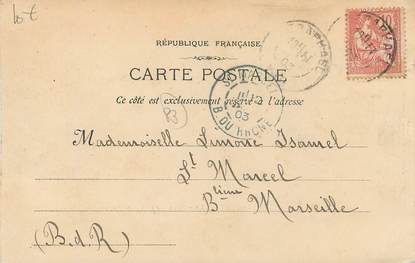 10 €
RÉPUBLIQUE FRANÇAISE
10
CARTE POSTALE
Ce côté est exclusivement réservé à l'adresse
03
B. DU RHONE
P3
Mademoiselle Limoire Isamel
St Marcel
Btime Marseille
(B.d.R)